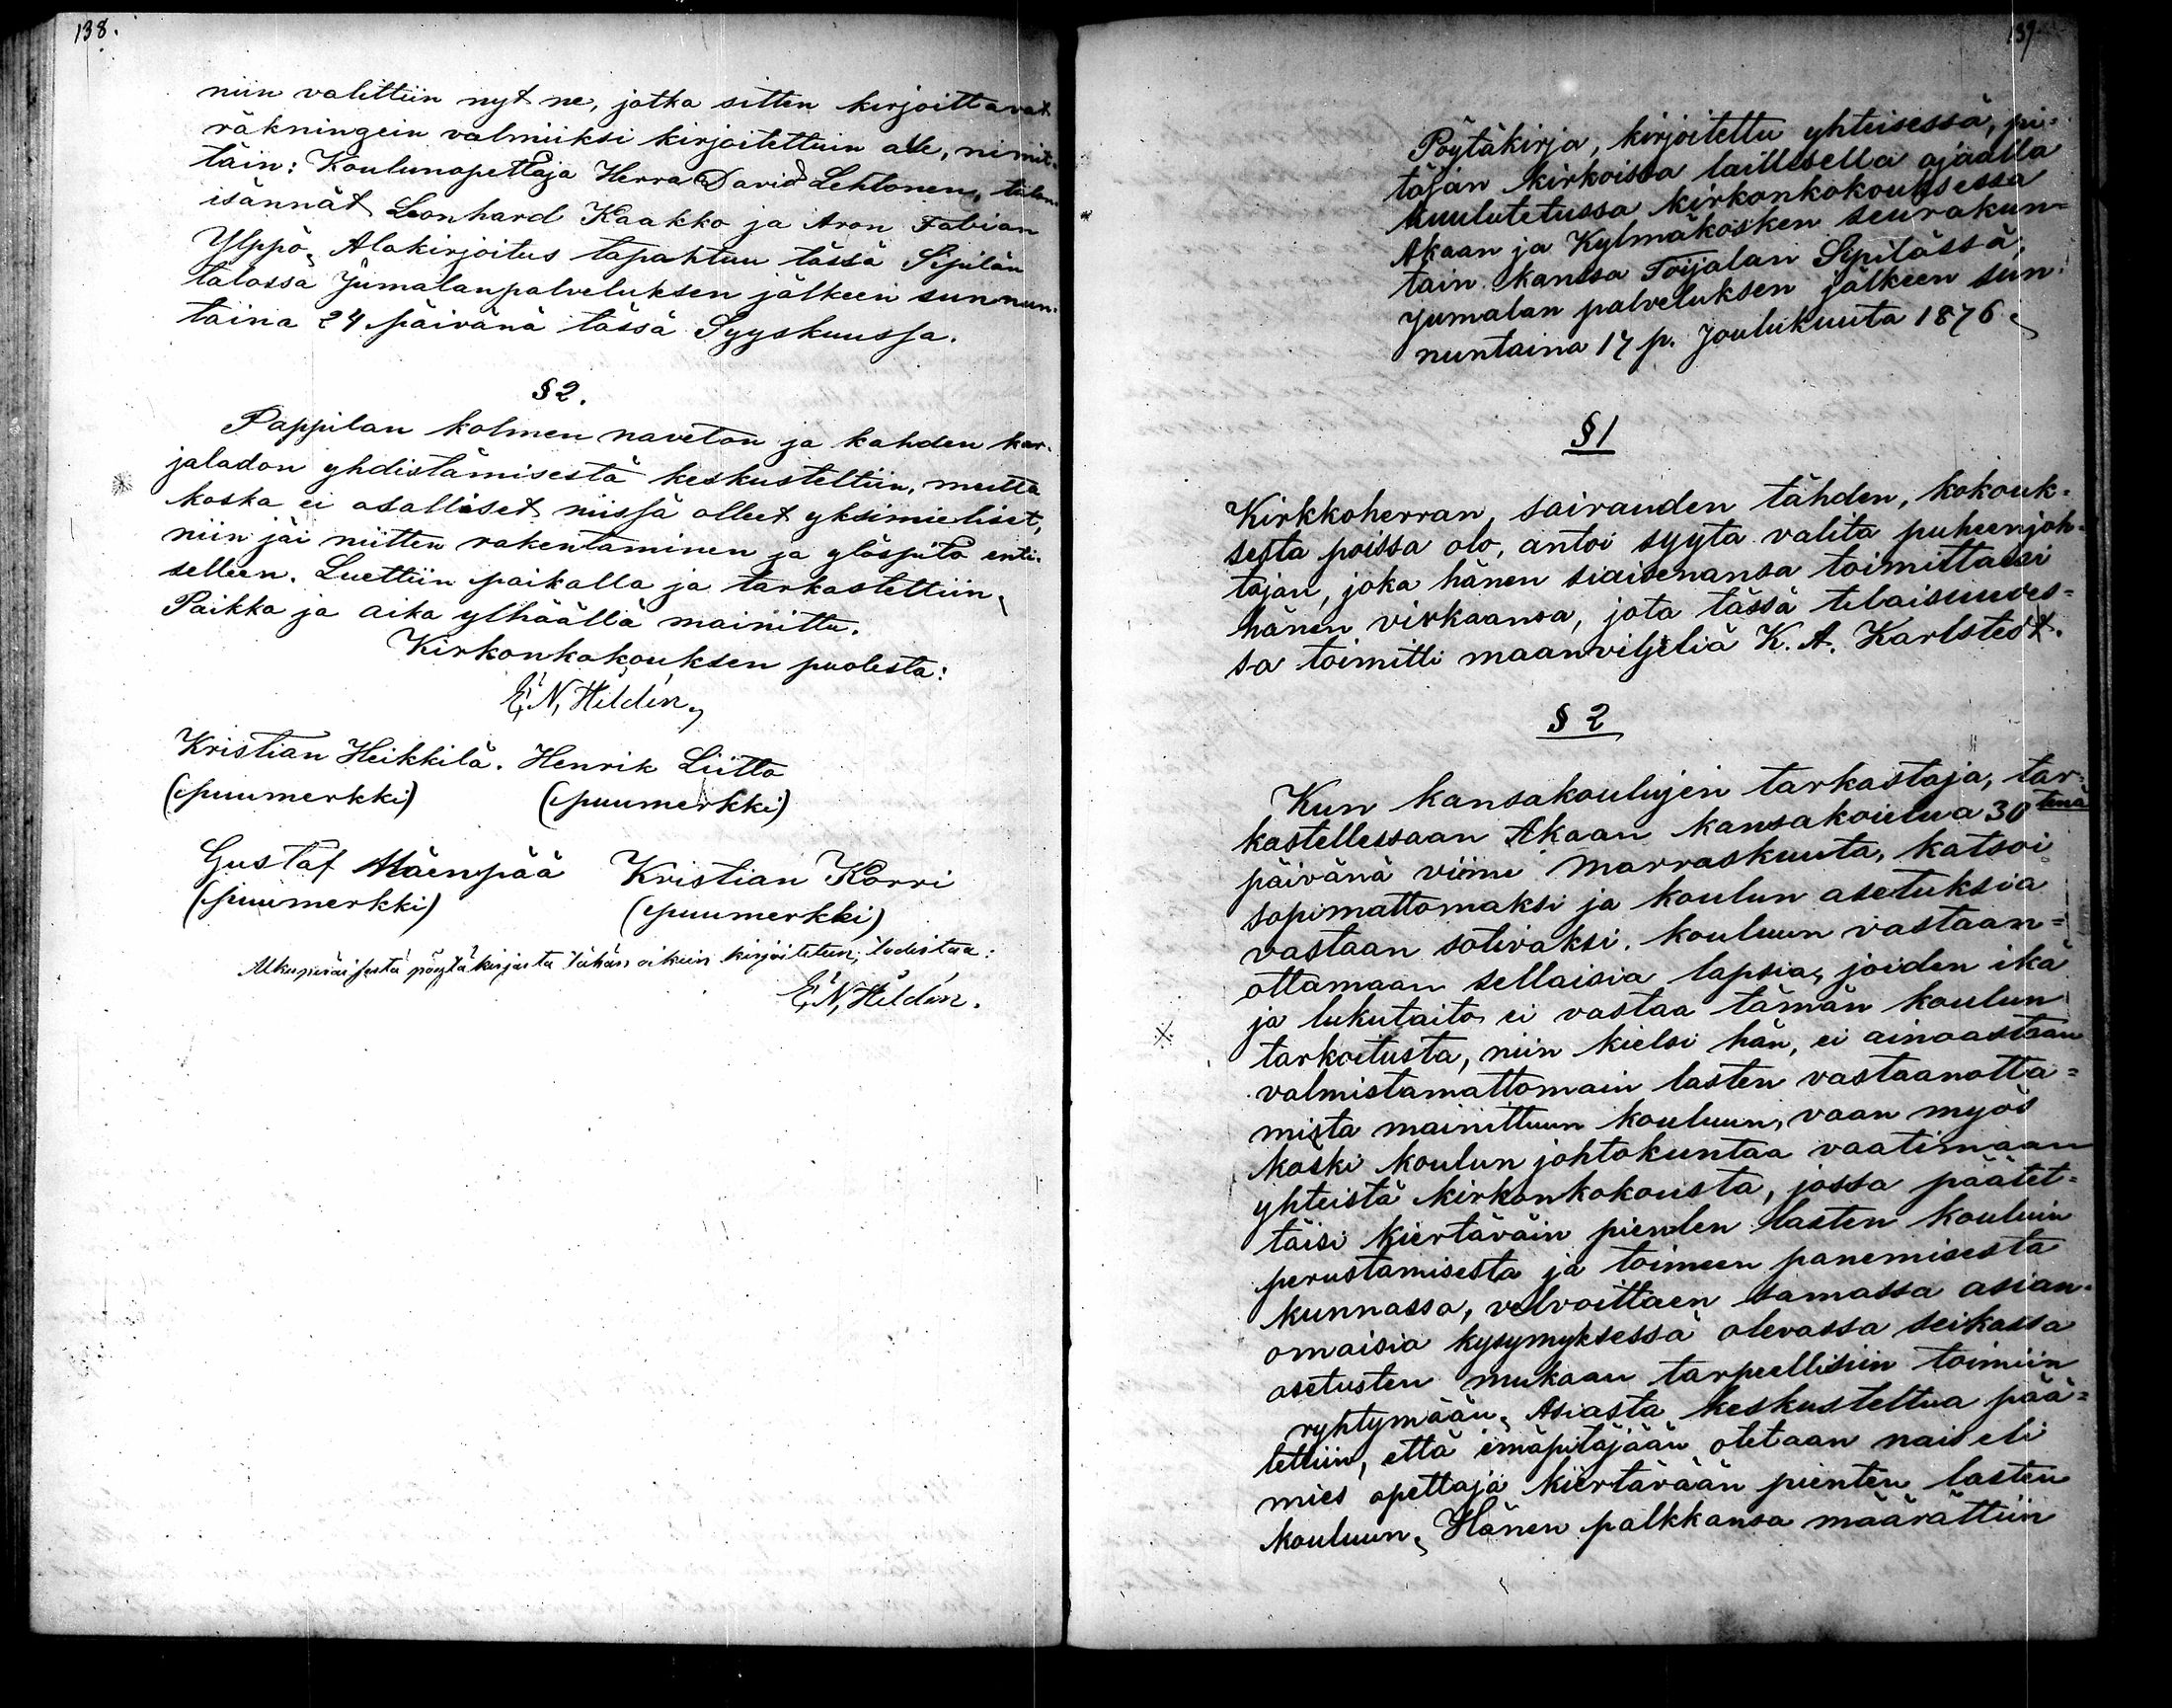 138.
niin valittiin nyt ne, jotka sitten kirjoittavat
räkningein valmiiksi kirjoitettuin alle, nimit-
täin: Koulunopettaja Herra David Lehtonen, talon-
isännät Leonhard Kaakko ja Aron Fabian
Ylppö. Alakirjoitus tapahtuu tässä Sipilän
talossa Jumalanpalveluksen jälkeen sunnun-
taina 24 päivänä tässä Syyskuussa.
§ 2.
Pappilan kolmen naveton ja kahden kar-
jaladon yhdistämisestä keskusteltiin, mutta
koska ei osalliset niissä olleet yksimieliset,
niin jäi niitten rakentaminen ja ylöspito enti-
selleen. Luettiin paikalla ja tarkastettiin.
Paikka ja aika ylhäällä mainittu.
Kirkonkokouksen puolesta:
E. N. Hildén.
Kristian Heikkilä. Henrik Liitto
(puumerkki) (puumerkki)
Gustaf Mäenpää Kristian Korri
(puumerkki) (puumerkki)
Alkuperäisestä pöytäkirjasta tähän oikein kirjoitetun, todistaa:
E. N. Hildén.
139
Pöytäkirja, kirjoitettu yhteisessä, pi-
täjän kirkoissa laillisella ajaalla
kuulutetussa kirkonkokouksessa
Akaan ja Kylmäkosken seurakun-
tain kanssa Toijalan Sipilässä,
Jumalan palveluksen jälkeen sun-
nuntaina 17 p. Joulukuuta 1876.
§ 1
Kirkkoherran sairauden tähden, kokouk-
sesta poissa olo, antoi syytä valita puheenjoh-
tajan, joka hänen siaisenansa toimittaessi
hänen virkaansa, jota tässä tilaisuudes-
sa toimitti maanviljeliä K. A. Karlstedt.
§ 2
Kun kansakoulujen tarkastaja, tar-
kastellessaan Akaan kansakoulua 30 tenä
päivänä viime Marraskuuta, katsoi
sopimattomaksi ja koulun asetuksia
vastaan sotivaksi, kouluun vastaan-
ottamaan sellaisia lapsia, joiden ikä
ja lukutaito ei vastaa tämän koulun
tarkoitusta, niin kielsi hän, ei ainoastaan
valmistamattomain lasten vastaanotta-
mista mainittuun kouluun, vaan myös
käski koulun johtokuntaa vaatimaan
yhteistä kirkonkokousta, jossa päätet-
täisi kiertäväin pienten lasten kouluin
perustamisesta ja toimeen panemisesta
kunnassa, velvoittaen samassa asian-
omaisia kysymyksessä olevassa seikassa
asetusten mukaan tarpeellisiin toimiin
ryhtymään. Asiasta keskusteltua pää-
tettiin, että emäpitäjään otetaan nais eli
mies opettaja kiertävään pienten lasten
kouluun. Hänen palkkansa määrättiin